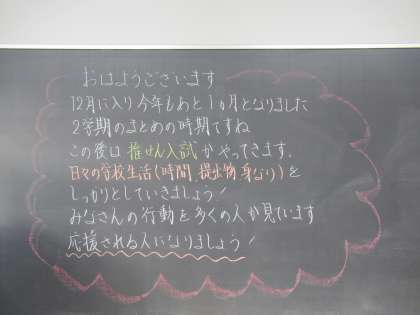 おはようございます
12月に入り今年もあと1か月となりました
2学期のまとめの時期ですね
この後は推せん入試がやってきます.
日々の学校生活(時間,提出物,身なり)を
しっかりとしていきましょう!
みなさんの行動を多くの人が見ています
応援される人になりましょう!